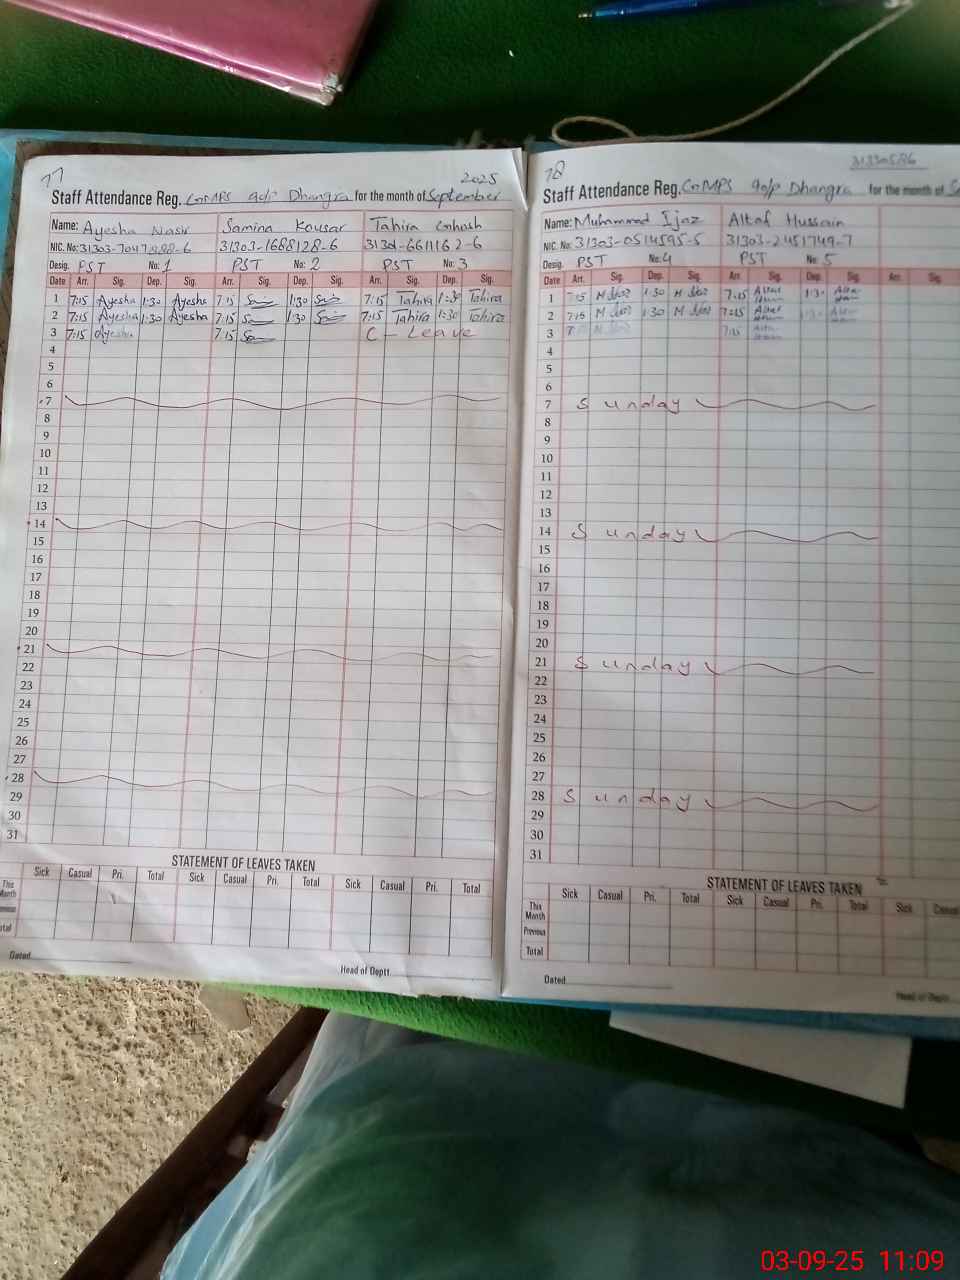 77
2025
Staff Attendance Reg. GMPS 90/P Dhangra for the month of September
Name: Ayesha Nasir Samina Kousar Tahira
NIC. No: 31303- 31303-1688128-6
Desig. PST No: 1 PST No: 2 PST No: 3
Date Arr. Sig. Dep. Sig. Arr. Sig. Dep. Sig. Arr. Sig. Dep. Sig.
1 7:15 Ayesha 1:30 Ayesha 7:15 1:30 7:15 Tahira 1:30 Tahira
2 7:15 Ayesha 1:30 Ayesha 7:15 1:30 7:15 Tahira 1:30 Tahira
3 7:15 Ayesha 7:15 C - Leave
4
5
6
7
8
9
10
11
12
13
14
15
16
17
18
19
20
21
22
23
24
25
26
27
28
29
30
31
STATEMENT OF LEAVES TAKEN
Sick Casual Pri. Total Sick Casual Pri. Total Sick Casual Pri. Total
This Month
Dated
Head of Deptt.
78
Staff Attendance Reg. GMPS 90/P Dhangra for the month of
Name: Muhammad Ijaz Altaf Hussain
NIC. No: 31303-0514595-5 31303-2451749-7
Desig. PST No: 4 PST No: 5
Date Arr. Sig. Dep. Sig. Arr. Sig. Dep. Sig. Arr. Sig.
1 7:15 M Ijaz 1:30 M Ijaz 7:15 Altaf 1:30
2 7:15 M Ijaz 1:30 M Ijaz 7:15 Altaf 1:30
3 7:15
4
5
6
7 Sunday
8
9
10
11
12
13
14 Sunday
15
16
17
18
19
20
21 Sunday
22
23
24
25
26
27
28 Sunday
29
30
31
STATEMENT OF LEAVES TAKEN
Sick Casual Pri. Total Sick Casual Pri. Total Sick
This Month
Previous
Total
Dated
Head of Deptt.
03-09-25 11:09